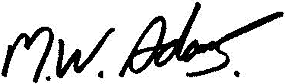 M.W. Adams.